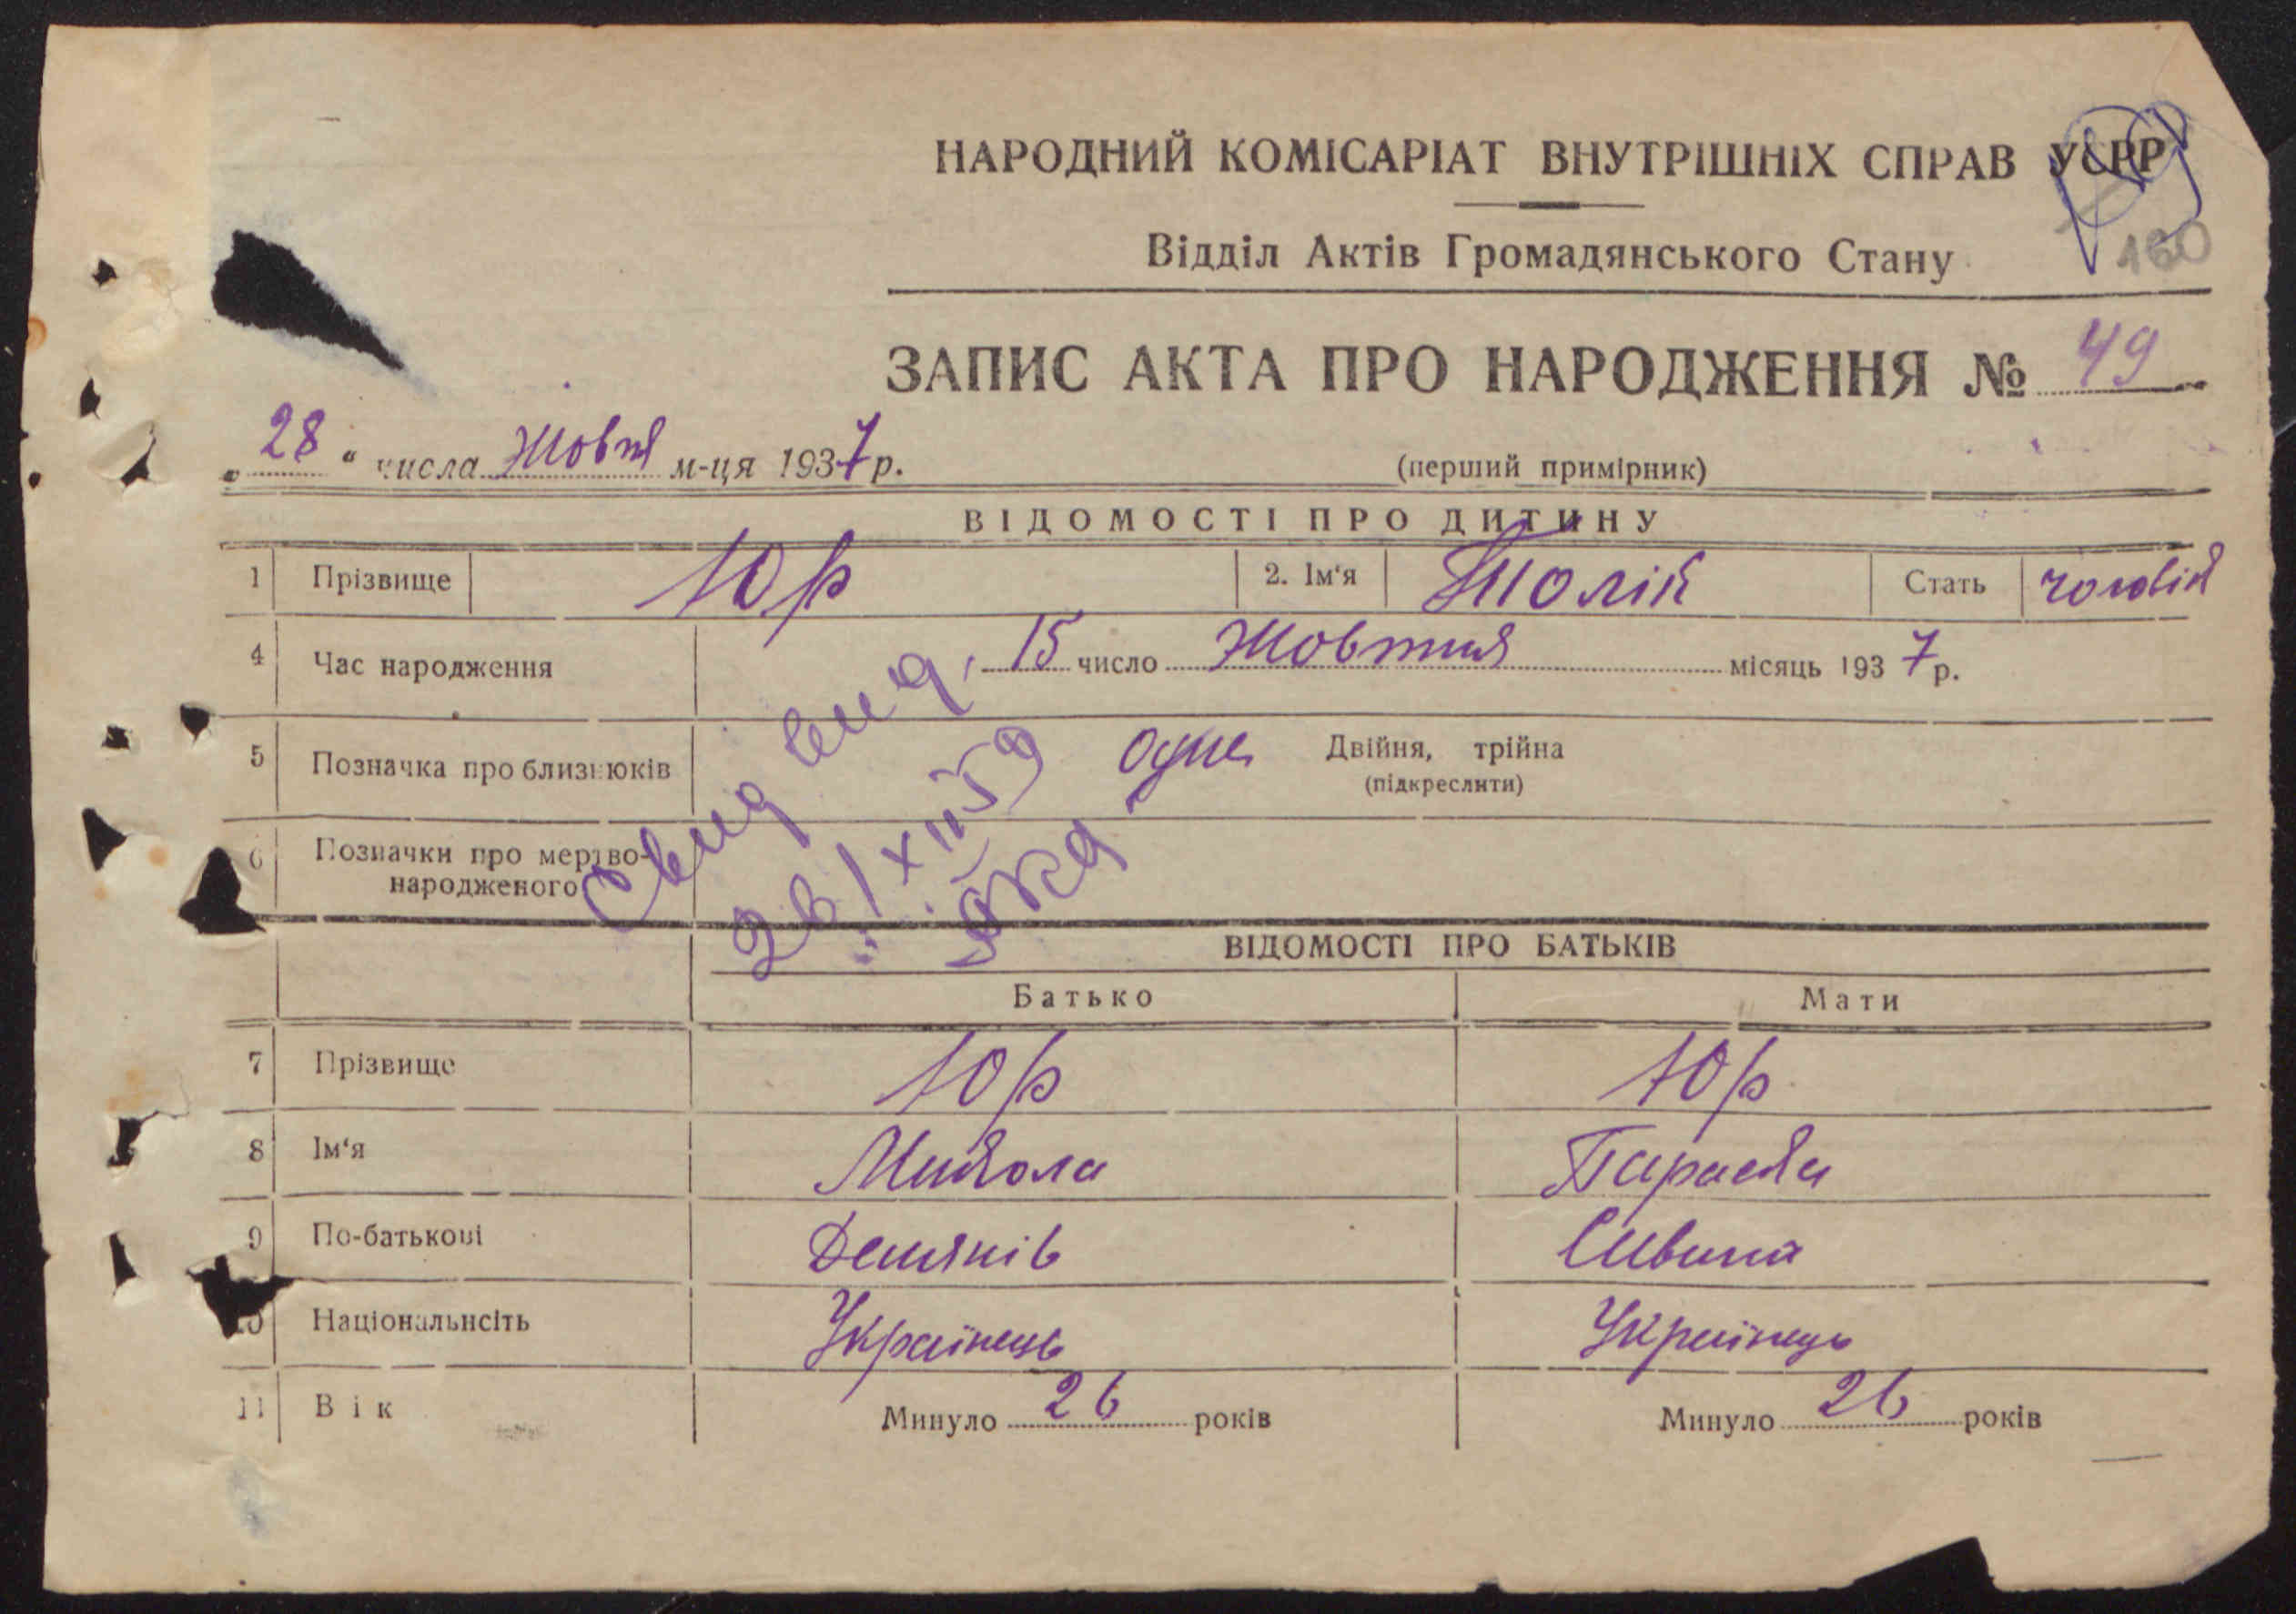 НАРОДНИЙ КОМІСАРІАТ ВНУТРІШНІХ СПРАВ УСРР
160
Відділ Актів Громадянського Стану
ЗАПИС АКТА ПРО НАРОДЖЕННЯ № 49
„28“ числа Жовтя м-ця 1937 р.
(перший примірник)
ВІДОМОСТІ ПРО ДИТИНУ
1 Прізвище Юр 2. Ім‘я Толік Стать чоловік
4 Час народження 15 число Жовтня місяць 1937 р.
5 Позначка про близнюків одне Двійня, трійна
(підкреслити)
6 Позначки про мертво-
народженого
Свид выд.
26/XII 59
ВІДОМОСТІ ПРО БАТЬКІВ
Батько Мати
7 Прізвище Юр Юр
8 Ім‘я Микола Параска
9 По-батькові Демянів
10 Національнсіть Українець Українець
11 Вік Минуло 26 років Минуло 26 років